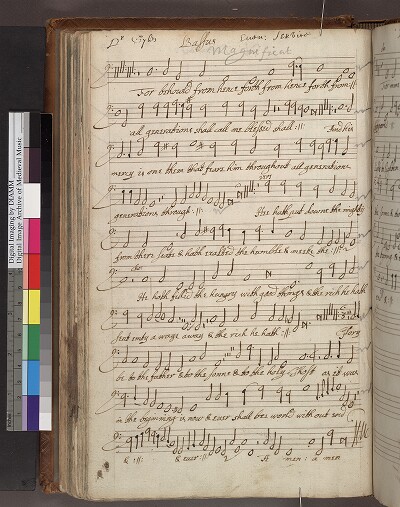 Bassus
Magnificat
For behould from hence forth from hence forth from :||:
all generations shall call me blessed shall :||: And his
mercy is one them that fears him throughout all generations
vers
generations through :||: He hath put downe the mighty
from there seate & hath exalted the humble & meeke the :||:
cho
He hath filled the hungry with good things & the rich he hath
sent away & the rich he hath :||: Glory
be to the father & to the sonne & to the holy Ghost as it was
in the beginning is now & ever shall bee world without end
& :||: & ever :||: 2 A men : a men
Digital Imaging by DIAMM
Digital Image Archive of Medieval Music